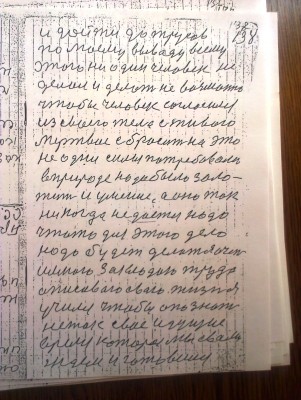 138
и дойти до трусов
по моему выводу всему
этого ни один человек не
делал и делат не возможно
чтобы человек согласился
из своего тела с живого
мертвае сбросит на это
не одни силы потребовали
в природе надо было золо-
тит и умение, а оно так
никогда не дается надо
чтото для этого дело
надо будет делат я очен
много заведодаю труда
описаваю сваго жизня
учили чтобы опознат
нетак свае идущие
время которае мы свами
ждем и готовиму